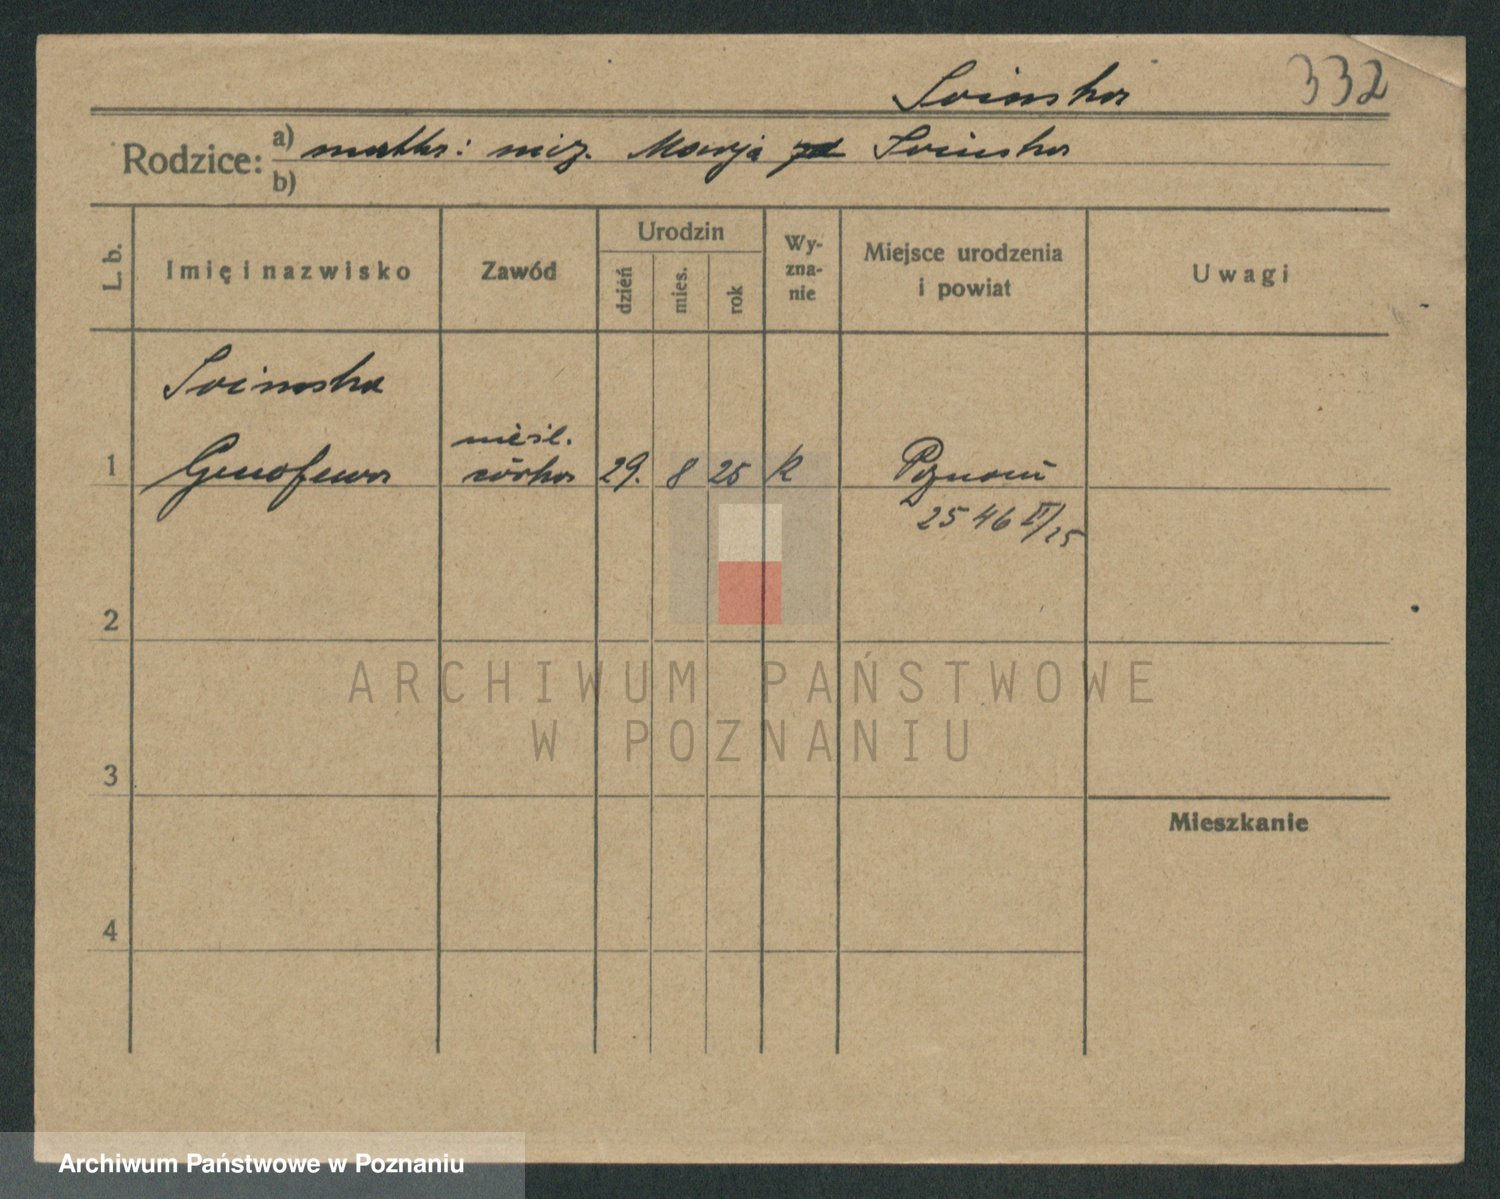 Soinska
332
Rodzice: a) matka: niez. Marja Soinska
b)
L. b.
Imię i nazwisko
Zawód
Urodzin
dzień
mies.
rok
Wy-
zna-
nie
Miejsce urodzenia
i powiat
Uwagi
Soinska
1 Genofewa
nieśl.
córka
29. 8 25 k
Poznań
2546 II/25
2
3
4
Mieszkanie
ARCHIWUM PAŃSTWOWE
W POZNANIU
Archiwum Państwowe w Poznaniu